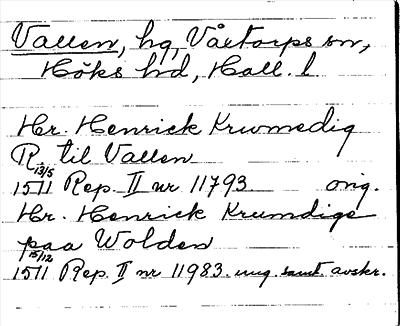 Vallen, hg, Våxtorps sn,
Höks hd, Hall. l
Hr. Henrick Krwmedig
R. til Vallen
13/5
1511 Rep. II nr 11793 orig.
Hr. Henrick Krumdige
paa Wolden
15/12
1511 Rep. II nr 11983. ung. samt. avskr.